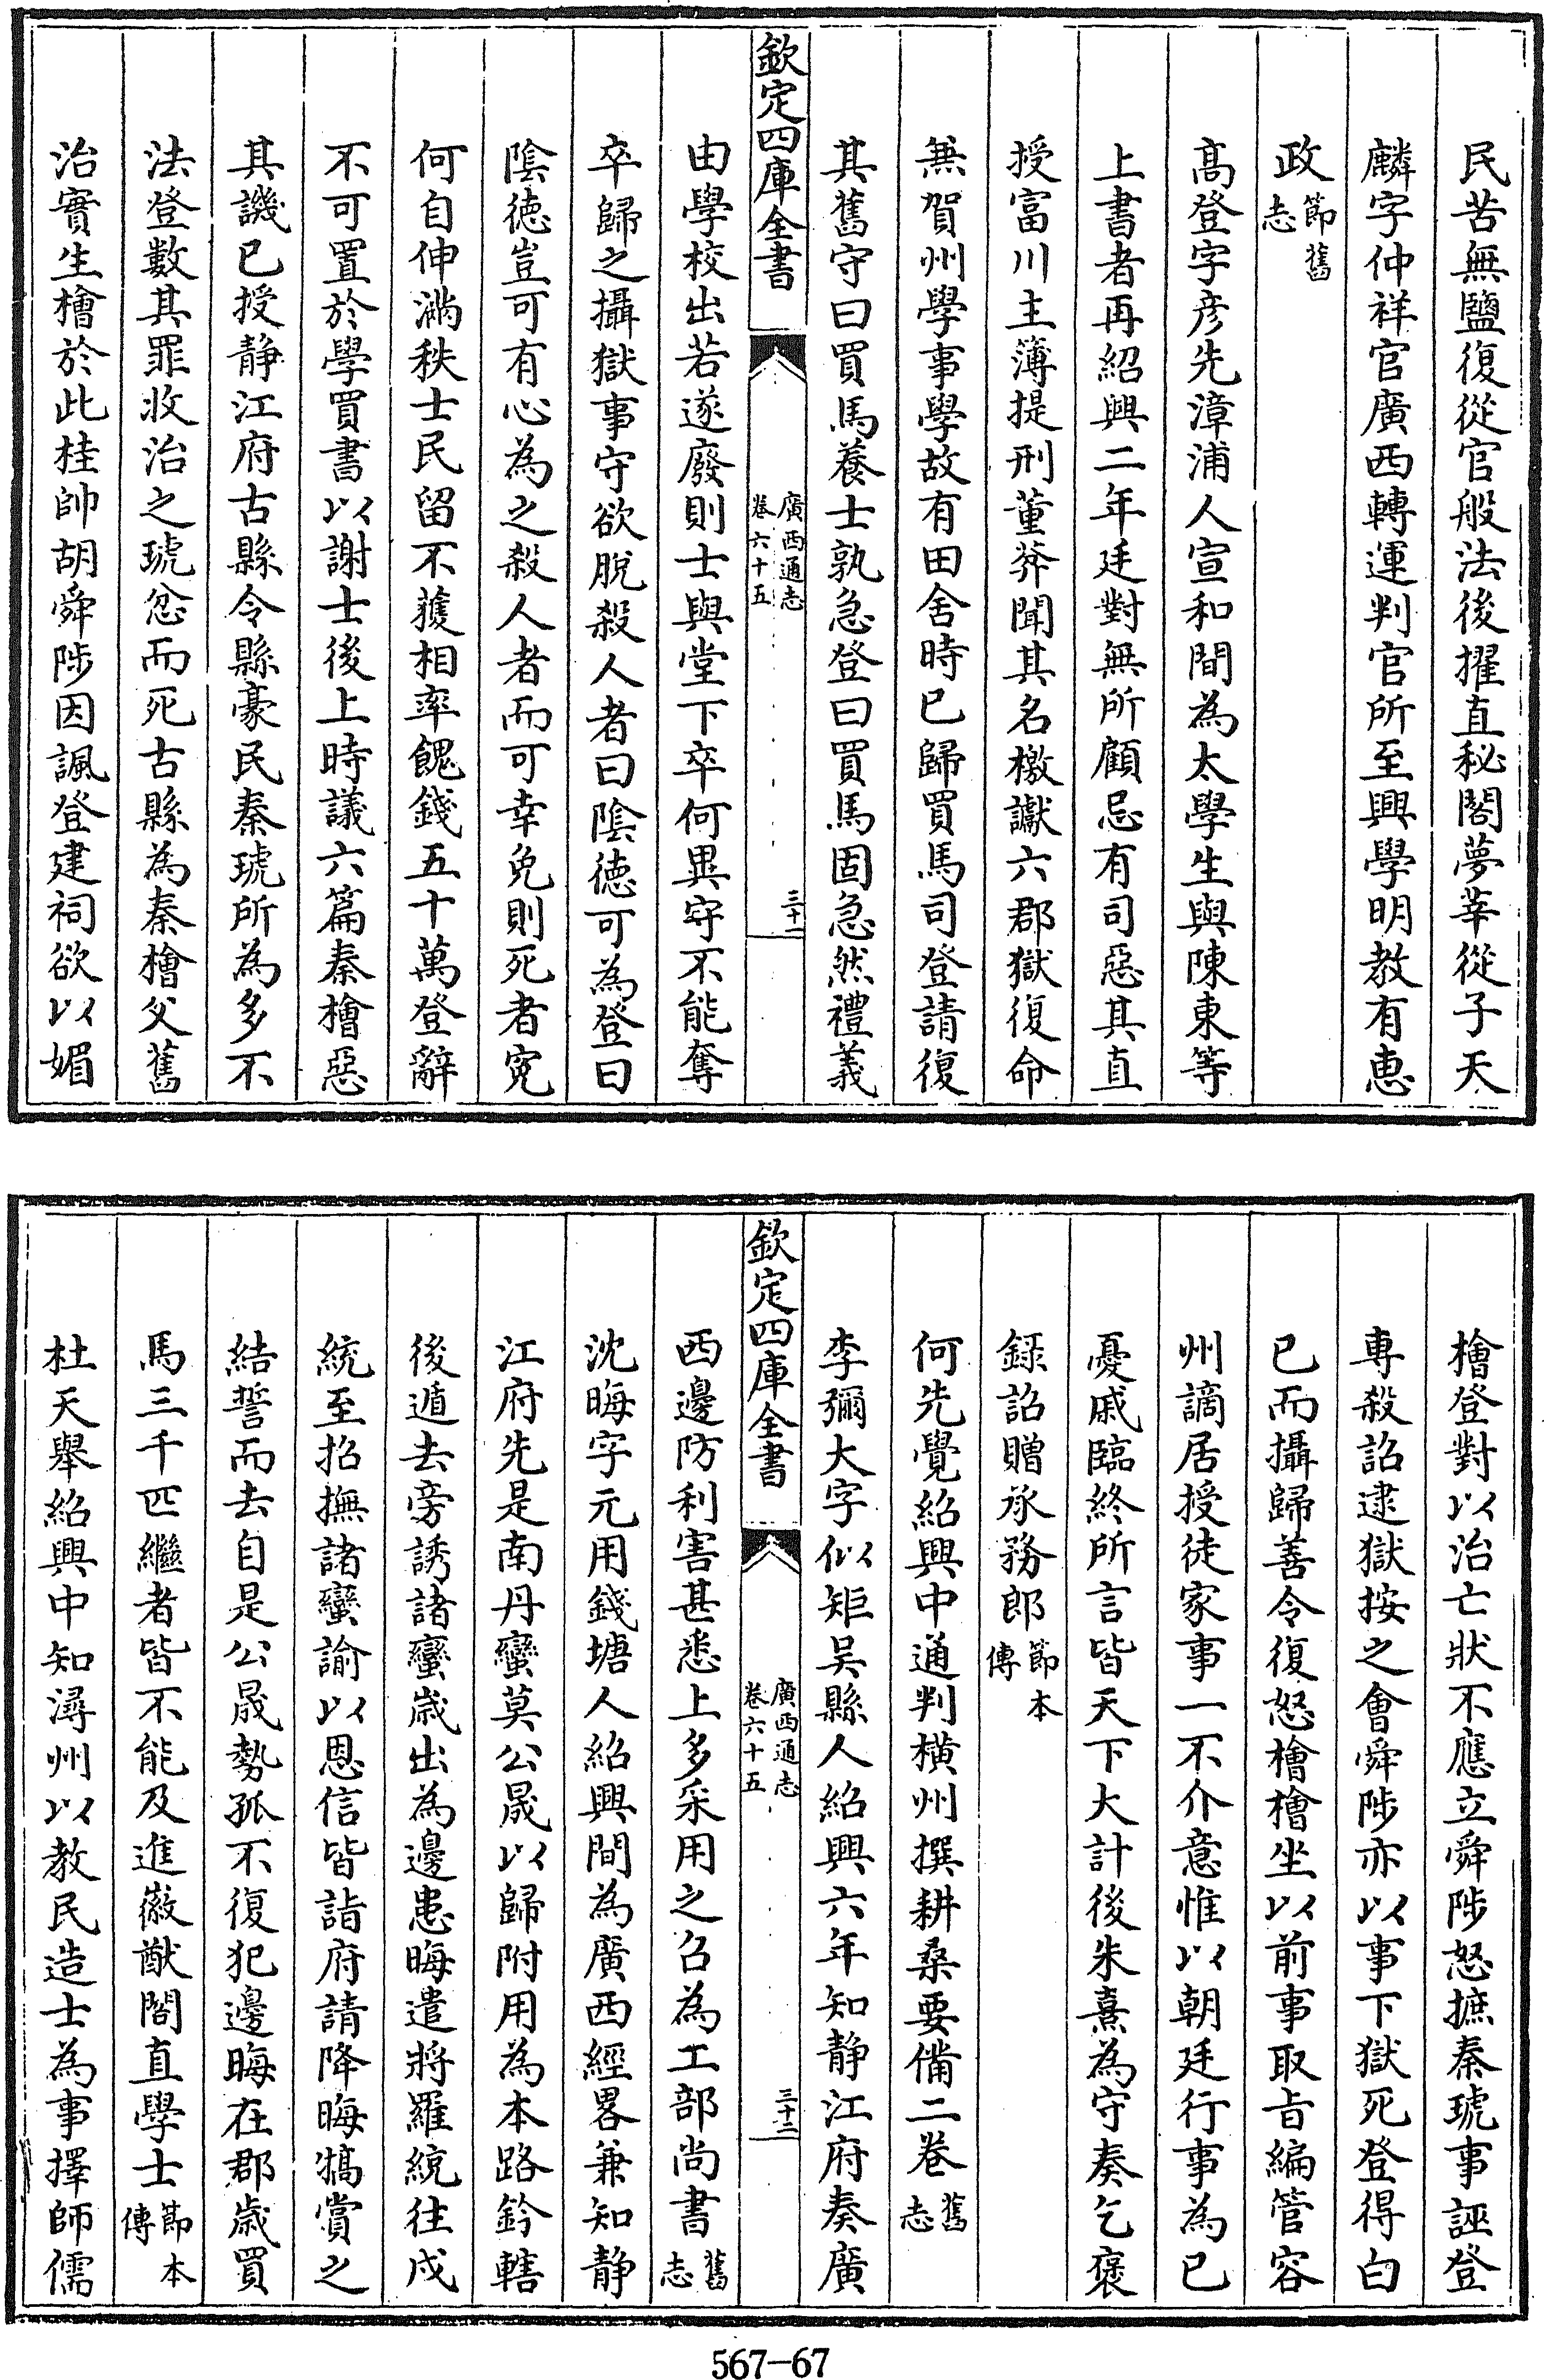 民苦無鹽復從官般法後擢直秘閣夢莘從子天
麟字仲祥官廣西轉運判官所至興學明教有惠
政節舊志
高登字彥先漳浦人宣和間為太學生與陳東等
上書者再紹興二年廷對無所顧忌有司惡其直
授富川主簿提刑董莽聞其名檄讞六郡獄復命
無賀州學事學故有田舍時已歸買馬司登請復
其舊守曰買馬養士孰急登曰買馬固急然禮義
欽定四庫全書
廣西通志
卷六十五
三十一
由學校出若遂廢則士與堂下卒何異守不能奪
卒歸之攝獄事守欲脫殺人者曰陰德可為登曰
陰德豈可有心為之殺人者而可幸免則死者寃
何自伸滿秩士民留不獲相率餽錢五十萬登辭
不可置於學買書以謝士後上時議六篇秦檜惡
其譏已授静江府古縣令縣豪民秦琥所為多不
法登數其罪收治之琥忿而死古縣為秦檜父舊
治實生檜於此桂帥胡舜陟因諷登建祠欲以媚
檜登對以治亡狀不應立舜陟怒摭秦琥事誣登
專殺詔逮獄按之會舜陟亦以事下獄死登得白
已而攝歸善令復怒檜檜坐以前事取旨編管容
州謫居授徒家事一不介意惟以朝廷行事為已
憂戚臨終所言皆天下大計後朱熹為守奏乞褒
録詔贈承務郎節本傳
何先覺紹興中通判橫州撰耕桑要備二巻舊志
李彌大字似矩吴縣人紹興六年知静江府奏廣
欽定四庫全書
廣西通志
卷六十五
三十二
西邊防利害甚悉上多采用之召為工部尚書舊志
沈晦字元用錢塘人紹興間為廣西經畧兼知静
江府先是南丹蠻莫公晟以歸附用為本路鈐轄
後遁去旁誘諸蠻歲出為邊患晦遣將羅統往戍
統至招撫諸蠻諭以恩信皆詣府請降晦犒賞之
結誓而去自是公晟勢孤不復犯邊晦在郡歲買
馬三千匹繼者皆不能及進徽猷閣直學士節本傳
杜天舉紹興中知潯州以教民造士為事擇師儒
567-67